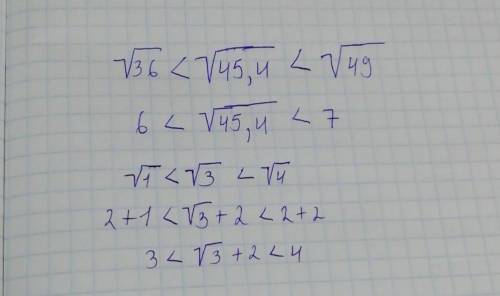 √36 < √45,4 < √49
6 < √45,4 < 7
√1 < √3 < √4
2+1 < √3 + 2 < 2+2
3 < √3 + 2 < 4